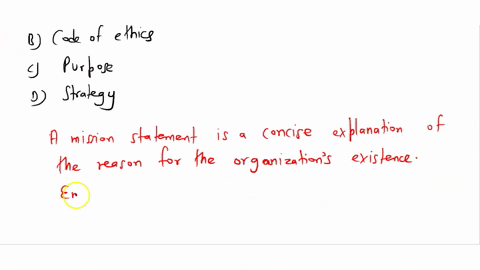 B) Code of ethics
C) Purpose
D) Strategy
A mission statement is a concise explanation of
the reason for the organization's existence.
En